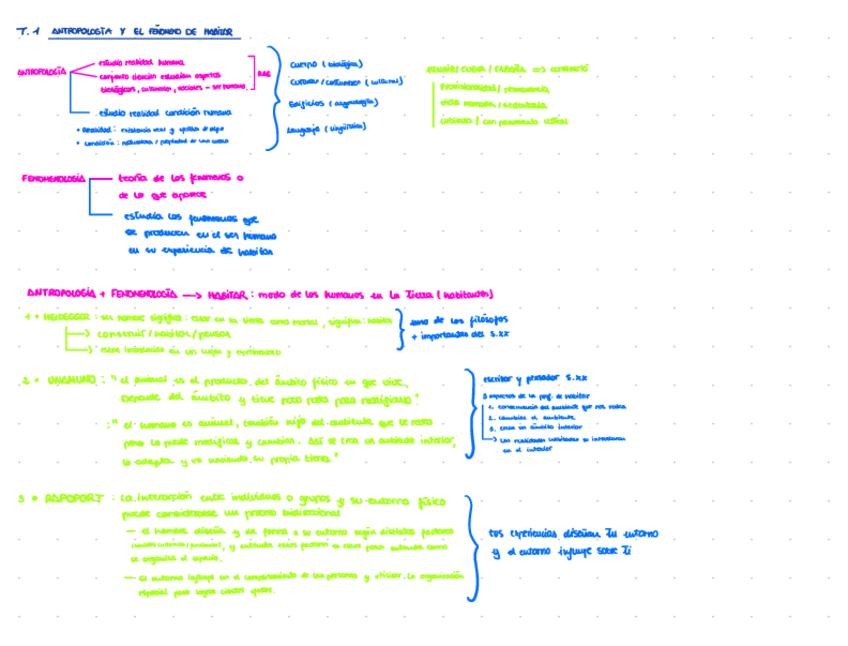 T.1 ANTROPOLOGÍA Y EL FENÓMENO DE HABITAR
ANTROPOLOGÍA
estudio realidad humana
conjunto ciencias estudian aspectos
biológicos, culturales, sociales - ser humano
RAE
estudio realidad condición humana
• Realidad: existencia real y efectiva de algo
• condición: naturaleza / propiedad de las cosas
cuerpo (biológica)
culturas / costumbres (cultural)
Edificios (arqueología)
Lenguaje (lingüística)
provisionalidad / permanencia
FENOMENOLOGÍA
teoría de los fenómenos o
de lo que aparece
estudia los fenómenos que
se producen en el ser humano
en su experiencia de habitar
ANTROPOLOGÍA + FENOMENOLOGÍA → HABITAR: modo de los humanos en la Tierra (habitantes)
1 • HEIDEGGER: ser hombre significa: estar en la tierra como mortal, significa: habitar
→ construir / habitar / pensar
uno de los filósofos
+ importantes del S.XX
2 • UNAMUNO: "el animal es el producto del ámbito físico en que vive,
Depende del ámbito y tiene poco para modificarlo"
: "el humano es animal, también hijo del ambiente que le rodea
pero lo puede modificar y cambiar. Así se crea un ambiente interior,
lo adapta y va haciendo su propia tierra"
escritor y pensador S.XX
3 aspectos de la de habitar
1. conservación del ambiente que nos rodea
2. cambiar el ambiente
3. crea un ámbito interior
→ Las realidades exteriores se introducen
en el interior
3 • RAPOPORT: La interacción entre individuos o grupos y su entorno físico
puede considerarse un proceso bidireccional
— el hombre diseña y da forma a su entorno según distintos factores
, y entender estos factores es clave para entender como
se organiza el espacio.
— El entorno influye en el comportamiento de las personas y utilizar la organización
espacial para lograr ciertos
tus experiencias diseñan tu entorno
y el entorno influye sobre ti